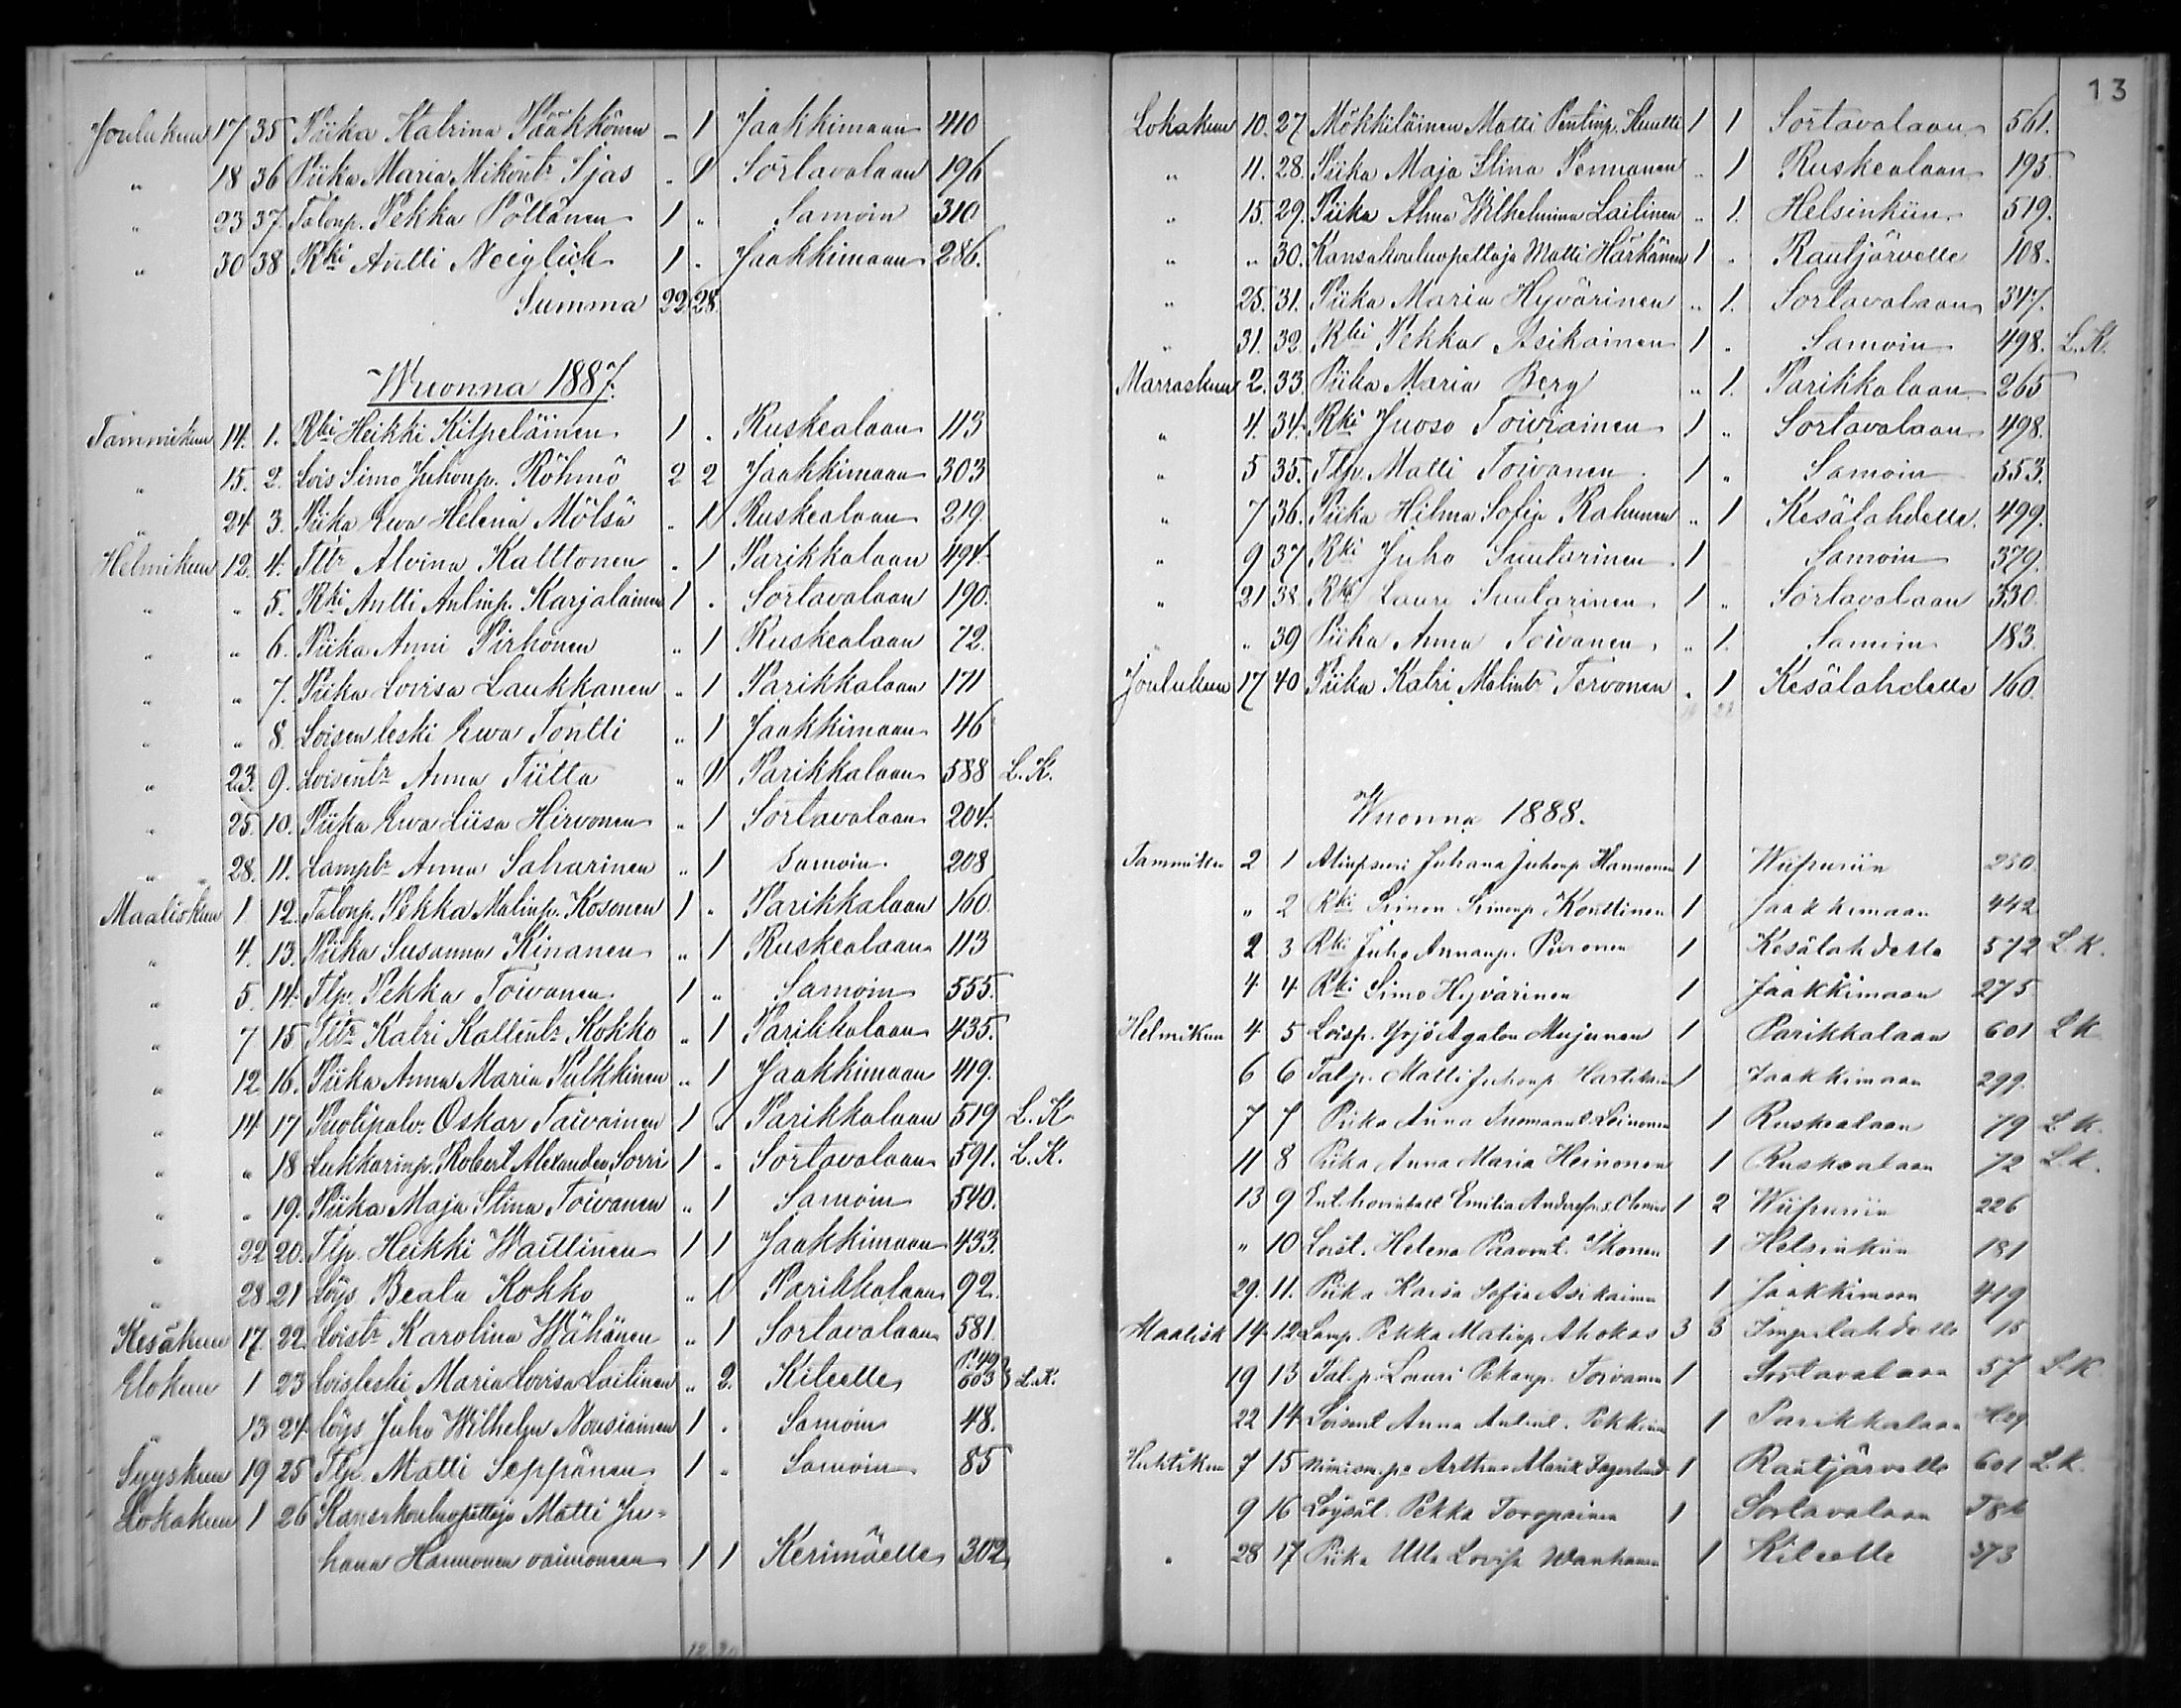 Joulukun 17 35 Piika Katrina Pääkkönen - 1 Jaakkimaan 410
" 18 36 Piika Maria Mikontr Ijas " 1 Sortavalaan 196
" 23 37. Talonp. Pekka Pöllänen 1 " Samoin 310
" 30 38 Rki Antti Neiglick 1 . Jaakkimaan 286.
Summa 22 28.
Wuonna 1887.
Tammikun 14. 1. Rki Heikki Kilpeläinen 1 . Ruskealaan 113
" 15. 2. Lois Simo Juhonp. Röhmö 2 2 Jaakkimaan 303
" 24 3. Piika Ewa Helena Mölsä . 1 Ruskealaan 219.
Helmikun 12. 4. Tttr Alvina Kalttonen . 1 Parikkalaan 494.
" " 5. Rki Antti Antinp. Karjalainen 1 . Sortavalaan 190.
" " 6. Piika Anni Pirhonen " 1 Ruskealaan 72.
" " 7. Piika Lovisa Laukkanen " 1 Parikkalaan 171
" " 8. Loisen leski Ewa Tontti " 1 Jaakkimaan 46
" 23. 9. Loisentr Anna Tiitta " 1 Parikkalaan 588 L. K.
" 25. 10. Piika Ewa Liisa Hirvonen " 1 Sortavalaan 204.
" " 28. 11. Lamptr Anna Saharinen " 1 Samoin 208
Maaliskun 1 12. Talonp. Pekka Matinp. Kosonen 1 " Parikkalaan 160.
" 4. 13. Piika Susanna Kinanen " 1 Ruskealaan 113
" 5. 14. Tlp. Pekka Toivanen 1 " Samoin 555.
" 7 15 Tttr Katri Kallentr Kokko " 1 Parikkalaan 435.
" 12. 16. Piika Anna Maria Pulkkinen " 1 Jaakkimaan 419.
" 14 17 Oskar Taivainen 1 " Parikkalaan 519 L. K.
" " 18 Lukkarinp. Robert Alexander Sorri 1 " Sortavalaan 591. L. K.
" " 19. Piika Maja Stina Toivanen " 1 Samoin 540.
" 22 20. Tlp. Heikki Waittinen 1 1 Jaakkimaan 433.
" 28 21 Löys Beata Kokko " 1 Parikkalaan 92.
Kesäkun 17. 22. Loistr Karolina Wähänen " 1 Sortavalaan 581.
Elokun 1 23 Loisleski Maria Lovisa Laitinen " 2. Kiteelle 603 L. K.
" 13 24. Löys Juho Wilhelm Nousiainen 1 . Samoin 48.
Syyskun 19 25 Tlp. Matti Seppänen 1 " Samoin 85
Lokakun 1 26 Kansakouluopettaja Matti Ju-
hana Hannonen vaimoneen 1 1 Kerimäelle 302
13
Lokakun 10. 27. Mökkiläinen Matti Pentinp. 1 1 Sortavalaan 561.
" 11. 28. Piika Maja Stina Pennanen " 1 Ruskealaan 195.
" 15. 29. Piika Alma Wilhelmina Laitinen " 1. Helsinkiin 519.
" " 30. Kansakouluopettaja Matti Härkönen 1 . Rautjärvelle 108.
" 25. 31. Piika Maria Hyvärinen " 1. Sortavalaan 347.
" 31. 32. Rki Pekka Asikainen 1 . Samoin 498. L. K.
Marraskun 2. 33. Piika Maria Berg " 1. Parikkalaan 265
" 4. 34. Rki Juoso Toivainen 1 " Sortavalaan 498.
" 5 35. Tlp. Matti Toivanen 1 " Samoin 553.
" 7 36. Piika Hilma Sofia Rahunen " 1 Kesälahdelle 499.
" 9 37 Rki Juho Suutarinen 1 Samoin 379.
" 21 38. Rki Lauri Suutarinen 1 " Sortavalaan 330.
" " 39 Piika Anna Toivanen " 1. Samoin 183.
Joulukun 17 40 Piika Katri Matintr Tervonen . 1 Kesälahdelle 160.
Wuonna 1888.
Tammikun 2 1 Juhana Juhonp Hannonen 1 Wiipuriin 250.
" 2 Rki Simon Simonp Konttinen 1 Jaakkimaan 442
2 3 Rki Juho Piironen 1 Kesälahdelle 572 L. K.
4 4 Rki Simo Hyvärinen 1 Jaakkimaan 275
Helmikun 4 5 Loisp. Yrjö Agaton Mujunen 1 Parikkalaan 601 L K
6 6 Talp. Matti Juhonp Hartikain 1 Jaakkimaan 299.
7 7 Piika Anna Leinonen 1 Ruskealaan 79 L K.
11 8 Piika Anna Maria Heinonen 1 Ruskealaan 72 L. K.
13 9 Emilia 1 2 Wiipuriin 226
" 10 Loist. Helena Paavont. Ikonen 1 Helsinkiin 181
29. 11. Piika Kaisa Sofia Asikainen 1 Jaakkimaan 419
Maalisk 14 12 Lamp. Pekka Matinp. Ahokas 3 3 Impilahdelle 15
19 13 Tal.p. Lauri Pekanp. Toivanen 1 Sortavalaan 57 L. K.
22 14 Loisent Anna Antint. 1 Parikkalaan
Huhtikun 7 15 Arthur Alarik Fagerlund 1 Rautjärvelle 601 L. K.
9 16 Pekka Toropainen 1 Sortavalaan
" 28 17 Piika Ulla Lovisa Wanhanen 1 Kiteelle 373